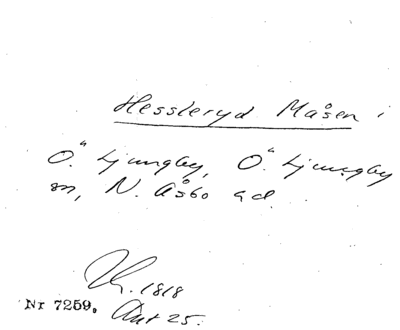 Hessleryd Måsen i
Ö. Ljungby, Ö. Ljungby
sn, N. Åsbo hd.
1818
Nr 7259. Ant 25.